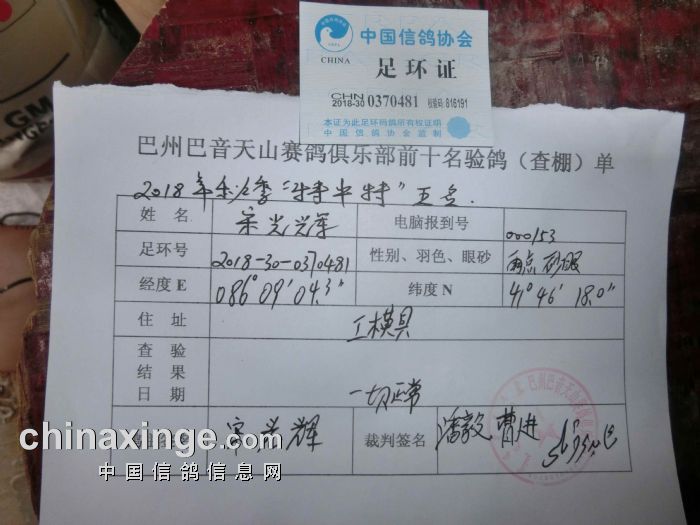 中国信鸽协会
CHINA
足环证
CHN
2018-30 0370481 校验码:816191
本证为此足环码鸽所有权证明
中国信鸽协会监制
巴州巴音天山赛鸽俱乐部前十名验鸽（查棚）单
2018年秋季“特中特”五名.
姓 名 宋光辉 电脑报到号 000153
足环号 2018-30-0370481 性别、羽色、眼砂 雨点 砂眼
经度E 086°09′04.3″ 纬度N 41°46′18.0″
住 址 工模具
查 验
结 果
日 期 一切正常
裁判签名 潘毅 曹进
chinaxinge.com
中国信鸽信息网